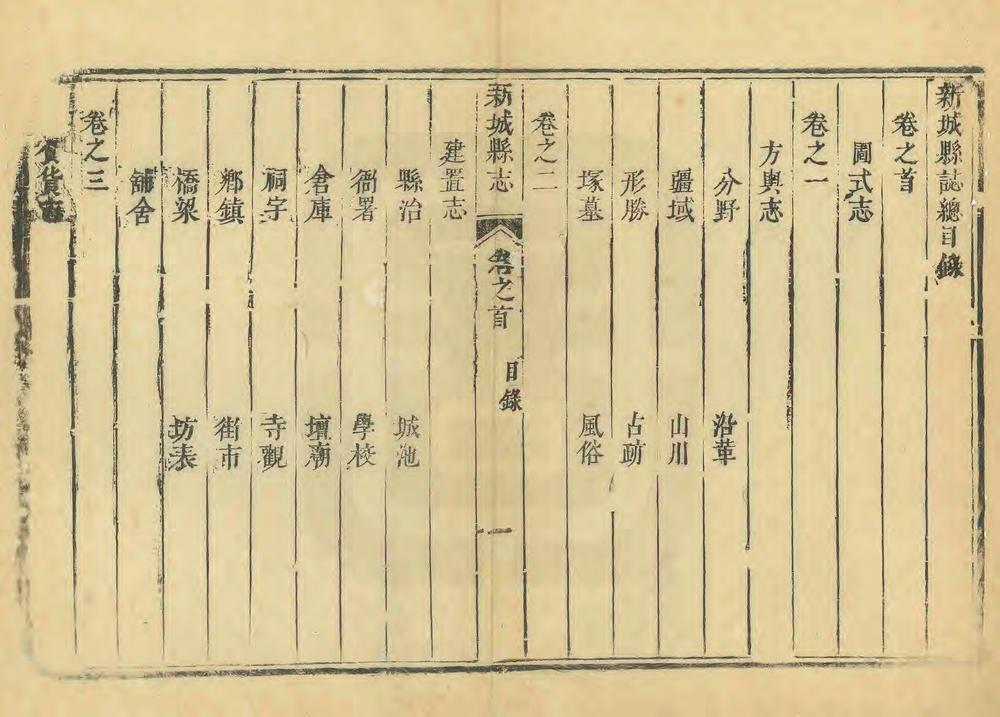 新城縣誌總目錄
卷之首
圖式志
卷之一
方輿志
分野 沿革
疆域 山川
形勝 古蹟
塚墓 風俗
卷之二
新城縣志 卷之首 目錄 一
建置志
縣治 城池
衙署 學校
倉庫 壇廟
祠宇 寺觀
鄉鎮 街市
橋梁 坊表
舖舍
卷之三
食貨志